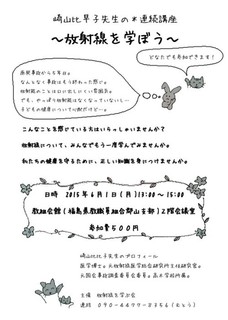 崎山比早子先生の*連続講座
～放射線を学ぼう～
どなたでも参加できます！
原発事故から5年目。
なんとなく事故はもう終わった感じ。
放射能のことは口に出しにくい雰囲気。
でも、やっぱり放射能はなくなっていないし…
子どもの健康について心配だけど…。
こんなことを感じている方はいらっしゃいませんか？
放射線について、みんなでもう一度学んでみませんか。
私たちの健康を守るために、正しい知識を身につけませんか。
日時 2015年6月1日(月)13:00～15:00
教組会館(福島県教職員組合郡山支部)2階会議室
参加費500円
崎山比早子先生のプロフィール
医学博士。元放射線医学総合研究所主任研究官。
元国会事故調査委員会委員。高木学校所属。
主催 放射線を学ぶ会
連絡